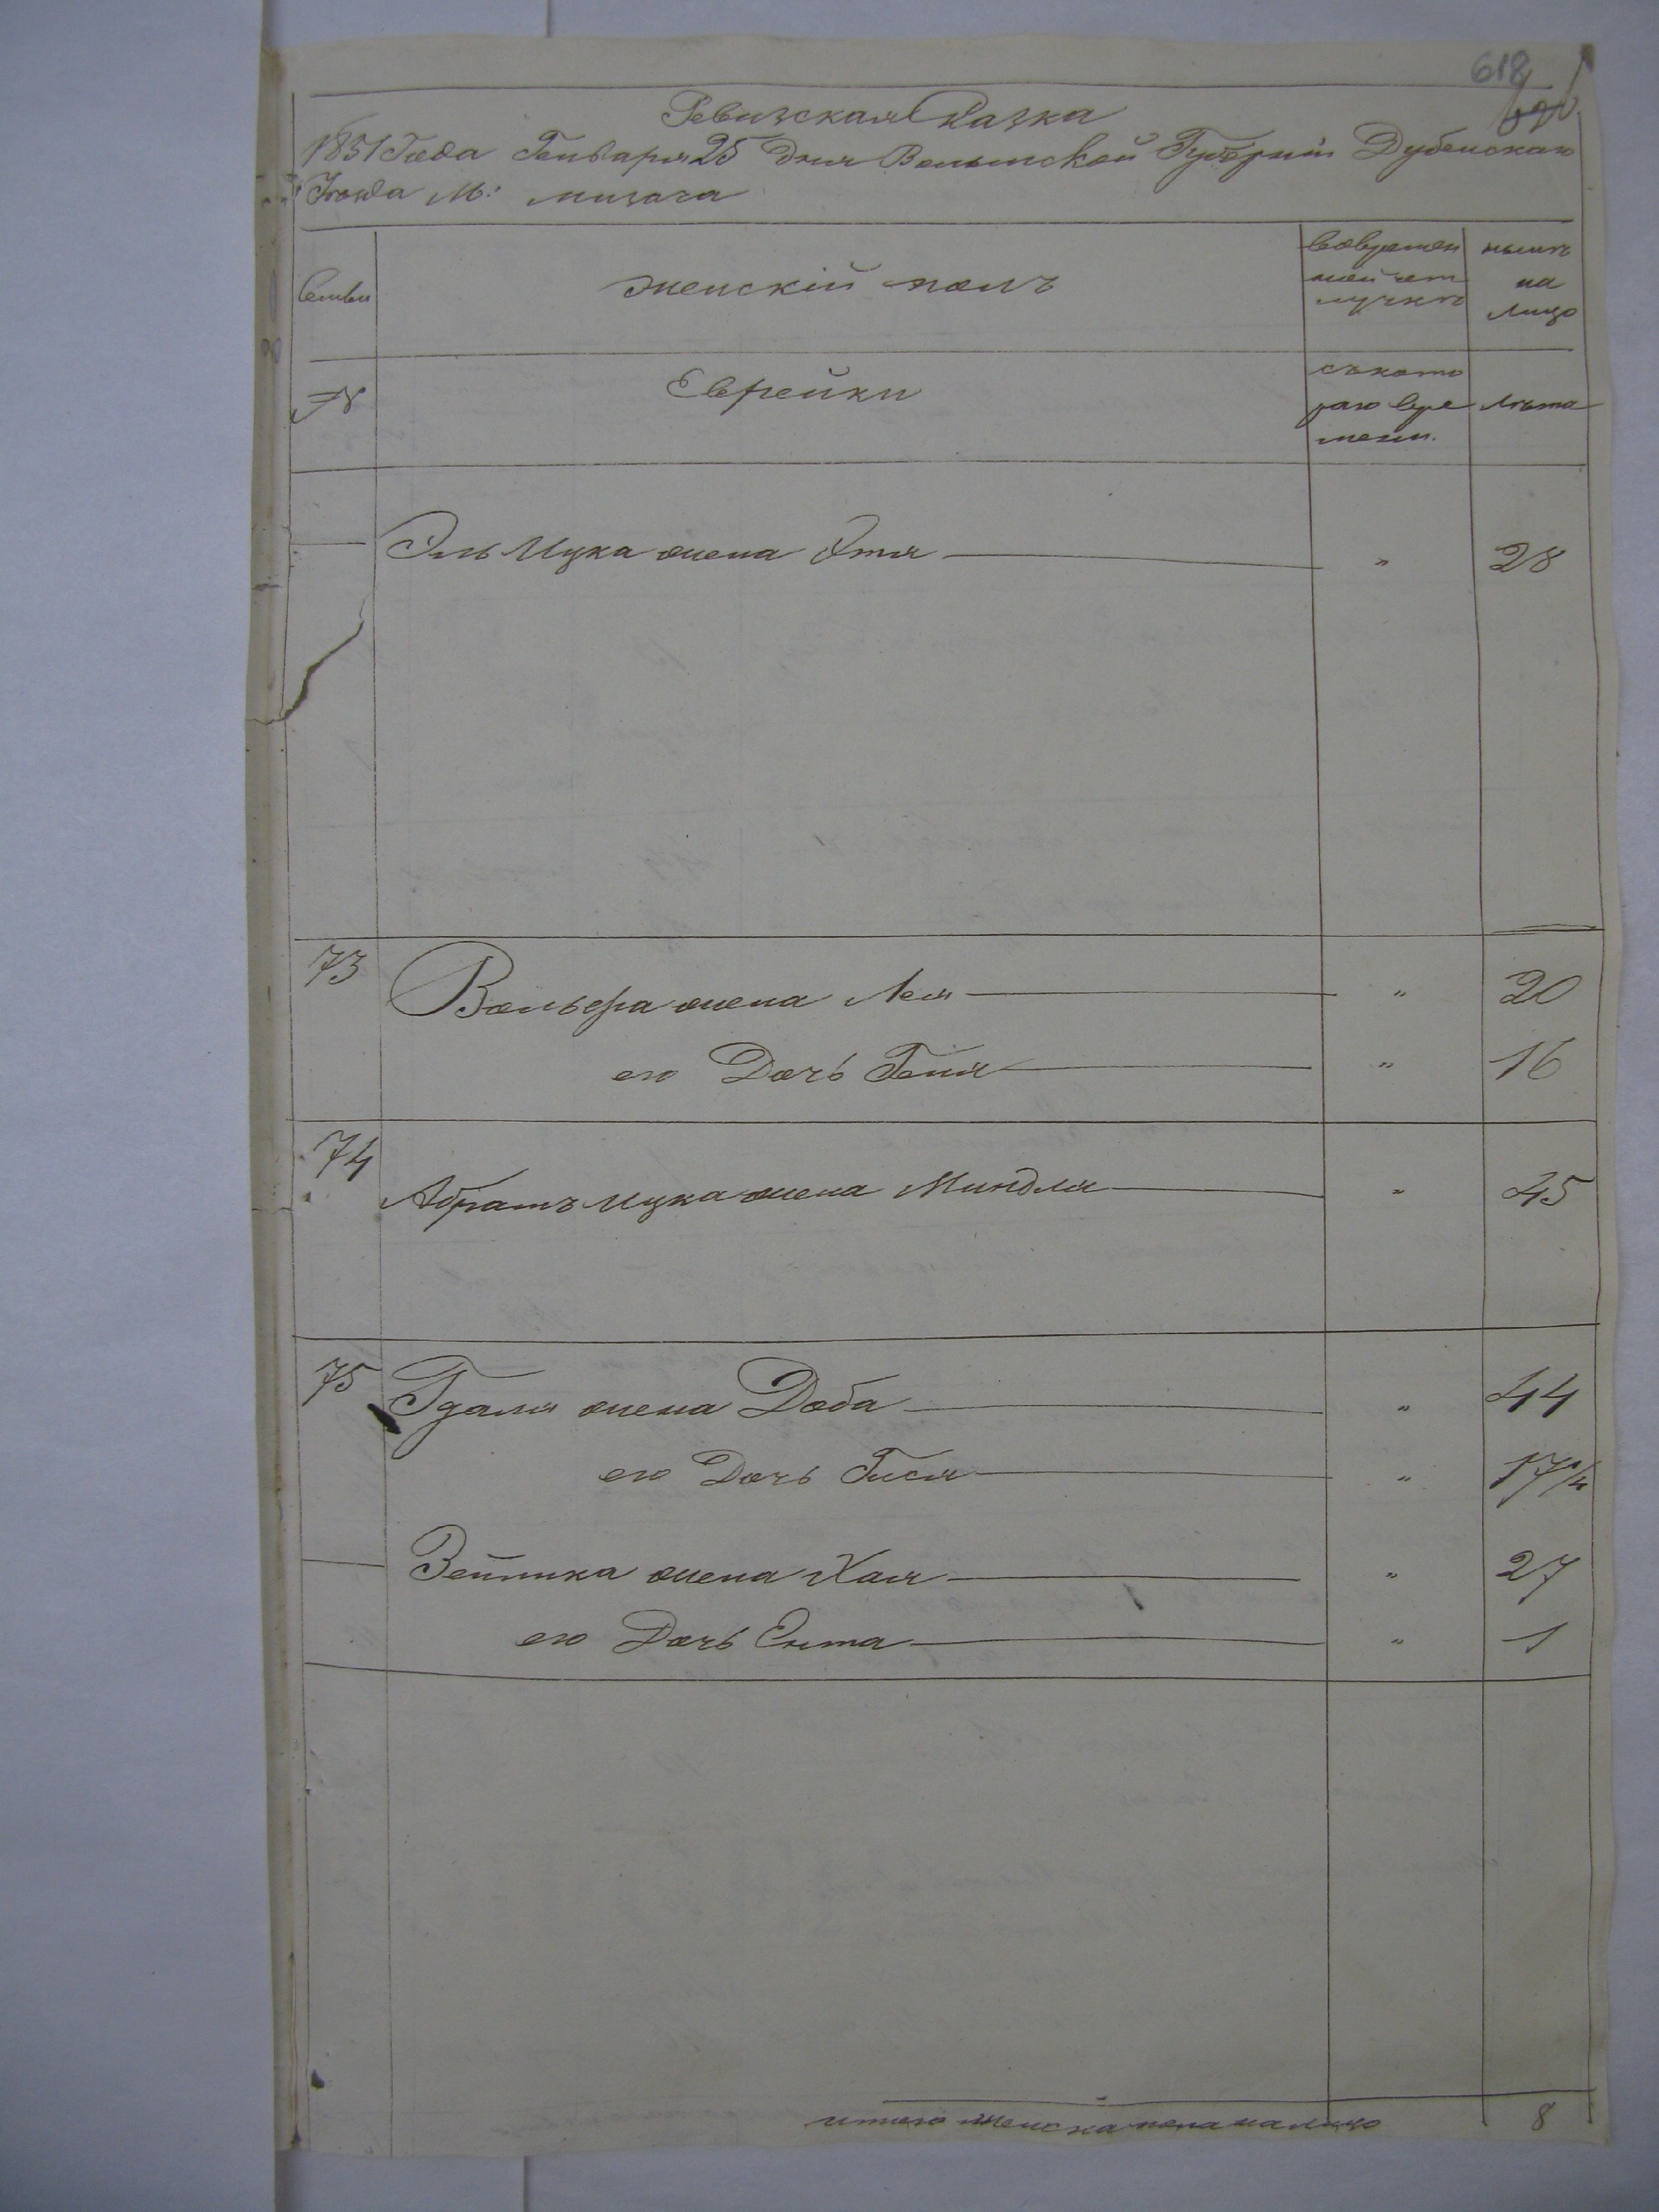 618
620
Ревизская Сказка
1851 Года Генваря 25 Дня Волынской Губерніи Дубенскаго
Уезда М: мизоча
Семьи
женскій полъ
вовремен
ной от
лучкѣ
нынѣ
на
лицо
№
Еврейки
съкото
раго вре
мени.
лѣта
Эль Ицка жена Этя " 28
73
Вольфа жена Лея " 20
его Дочь Геня " 16
74
Абрамъ Ицка жена Миндля " 45
75
Гдаля жена Доба " 44
его Дочь Гися " 17 1/4
Зейлика жена Хая " 27
его Дочь Ента " 1
итого женска пола налицо 8